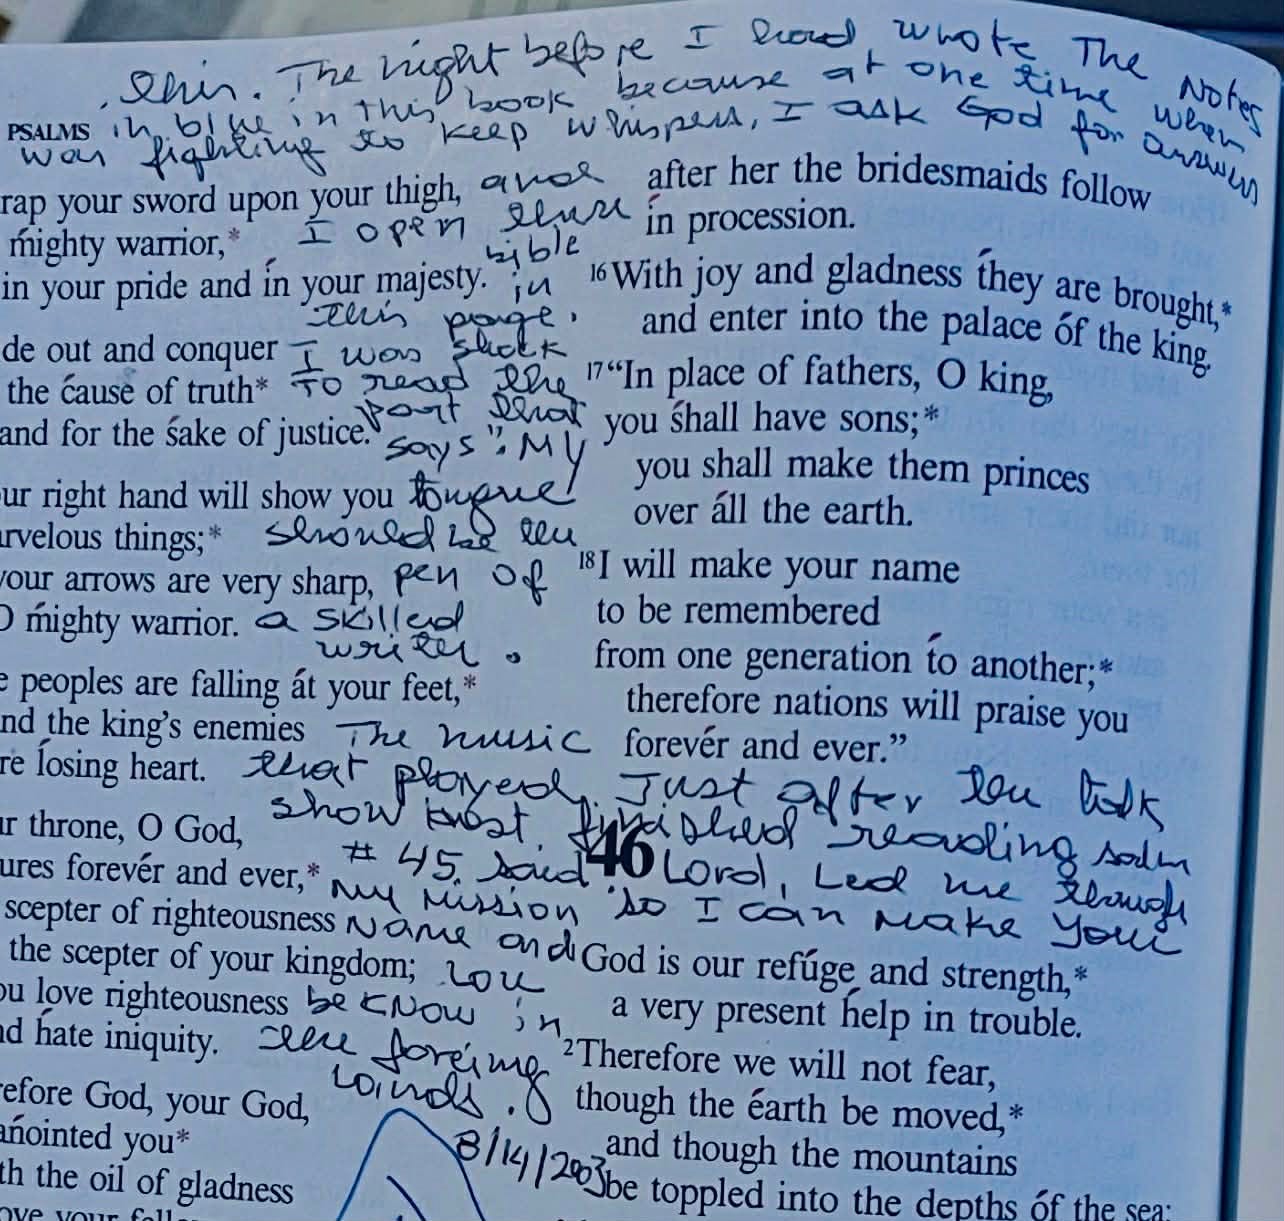 this. The night before I had wrote The Notes
in blue in this book because at one time when
PSALMS
was fighting to keep whispers, I ask God for answers
rap your sword upon your thigh, and
mighty warrior,* I open these
bible
in your pride and ín your majesty. in
this page.
de out and conquer I was stuck
the cáuse of truth* To read the
part that
and for the śake of justice. says": My
ur right hand will show you tongue
rvelous things;* should be the
your arrows are very sharp, pen of
O ḿighty warrior. a skilled
writer.
e peoples are falling át your feet,*
nd the king's enemies The music
re ĺosing heart. that played Just after the talk
show host finished reading salm
r throne, O God,
# 45, said Lord, Led me through
ures forevér and ever,* my mission so I can make your
scepter of righteousness Name and
the scepter of your kingdom; Lou
ou ĺove righteousness be know in
nd h́ate iniquity. the foreing
lainds.
efore God, your God,
anóinted you*
8/14/2003
th the oil of gladness
after her the bridesmaids follow
ín procession.
16 With joy and gladness th́ey are brought,*
and enter into the palace óf the king.
17 “In place of fathers, O king,
you śhall have sons;*
you shall make them princes
over áll the earth.
18 I will make your name
to be remembered
from one generation tó another;*
therefore nations will praise you
forevér and ever.”
46
God is our refúge and strength,*
a very present h́elp in trouble.
2 Therefore we will not fear,
though the éarth be moved,*
and though the mountains
be toppled into the depths óf the sea;